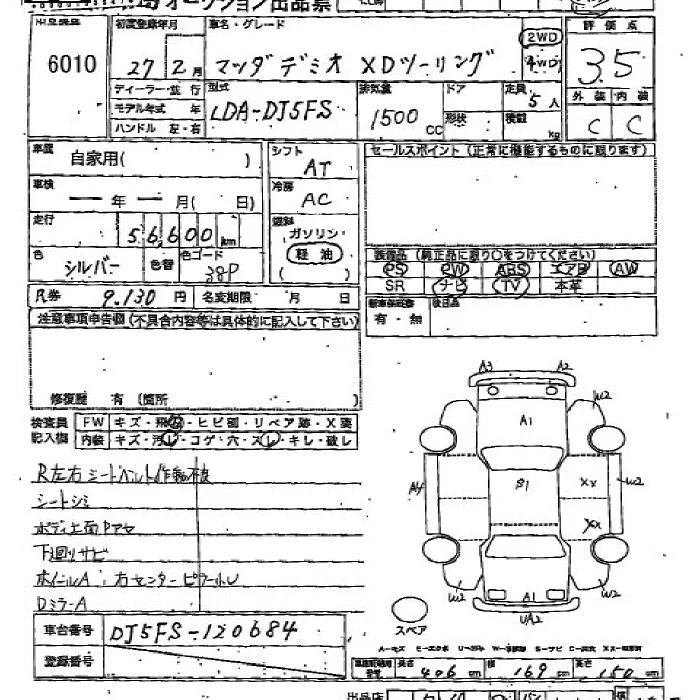 オークション出品票
6010
初度登録年月
27 2月
車名・グレード
マツダ デミオ XDツーリング
2WD
4WD
評価点
3.5
外装 内装
C C
ディーラー・並行
モデル年式 年
ハンドル 左・右
型式
LDA-DJ5FS
排気量
1500 CC
ドア
形状
定員
5人
積載
kg
車歴
自家用( )
シフト
AT
セールスポイント(正常に機能するものに限ります)
車検
ー年ー月( 日)
冷房
AC
走行
56600km
燃料
ガソリン
軽油
色
シルバー
色替
色コード
38P
装備品(純正品に限り○をつけてください)
PS PW ABS エアB AW
SR ナビ TV 本革
R券 9,130円
名変期限 月 日
有・無
後日品
注意事項申告欄(不具合内容等は具体的に記入して下さい)
修復歴 有(箇所 )
検査員
記入欄
FW キズ・飛石・ヒビ割・リペア跡・X要
内装 キズ・汚レ・コゲ・穴・スレ・キレ・破レ
R左右シートベルト作動不良
シートシミ
ボディ上面Pアセ
下廻リサビ
ホイールA 右センターピラーキレ
DミラーA
A3 A2
W2
A1
A4
S1
XX
W2
XX
W2
A1
W2
UA2
スペア
車台番号 DJ5FS-120684
登録番号
長さ 406cm 幅 169cm 高さ 150cm
出品店